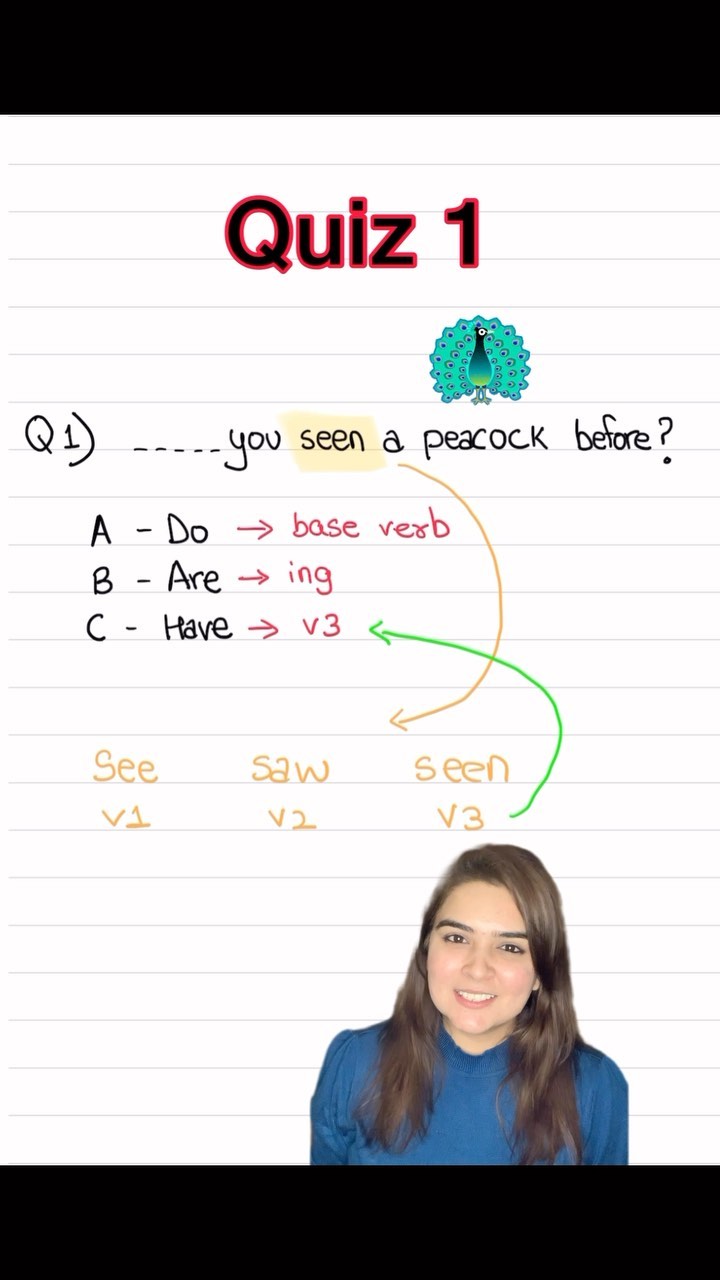 Quiz 1
Q1) -----you seen a peacock before?
A - Do → base verb
B - Are → ing
C - Have → v3
See saw seen
v1 v2 v3